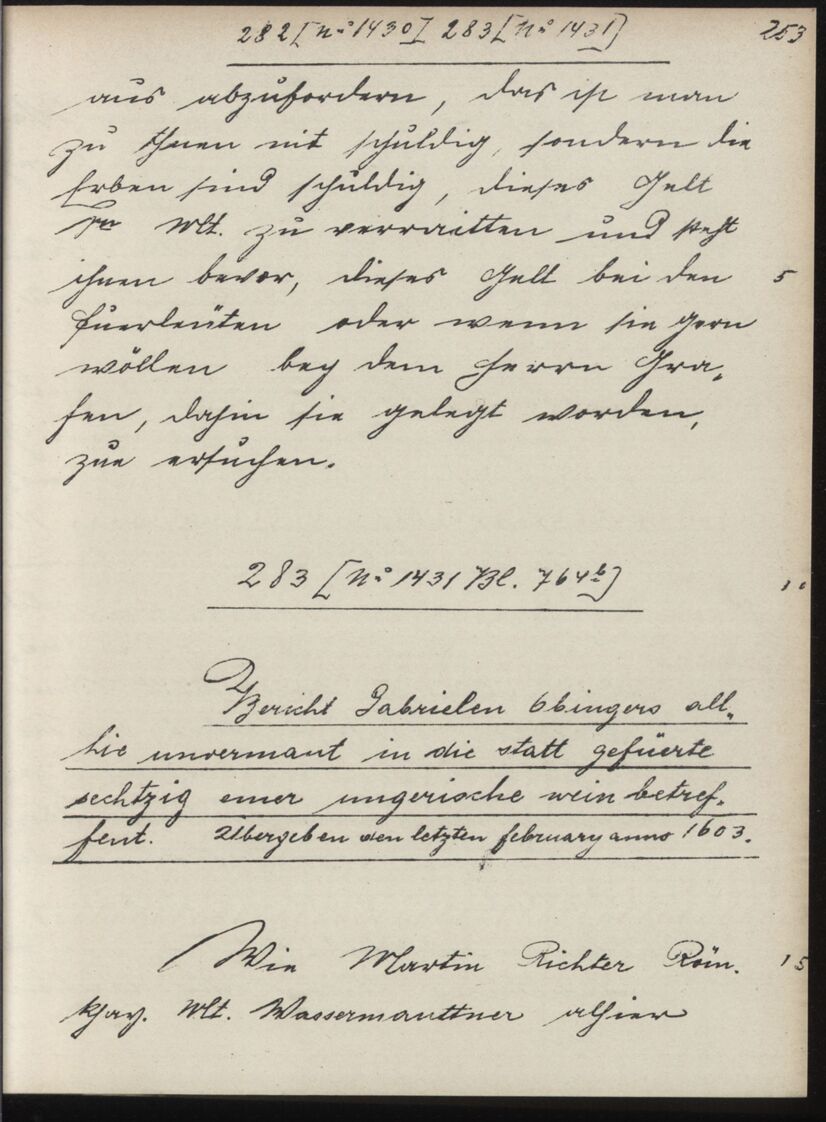 282 [No 1430] 283 [No 1431] 253
aus abzufordern, das ist man
zu Ihnen nit schuldig, sondern die
Erben sind schuldig, dieses Gelt
Mt. zu verraitten und steht
ihnen bevor, dieses Gelt bei den 5
fuerleüten oder wenn sie gern
wöllen bey dem Herrn Gra„
fen, dahin sie gelegt worden,
zue ersuchen.
283 [No 1431 Bl. 764b] 10
Bericht Gabrielen Obingers all„
hie unvermaut in die statt gefüerte
sechtzig emer ungerische wein betref„
fent. Übergeben den letzten february anno 1603.
Wie Martin Richter Röm. 15
khay. Mt. Wassermauttner alhier